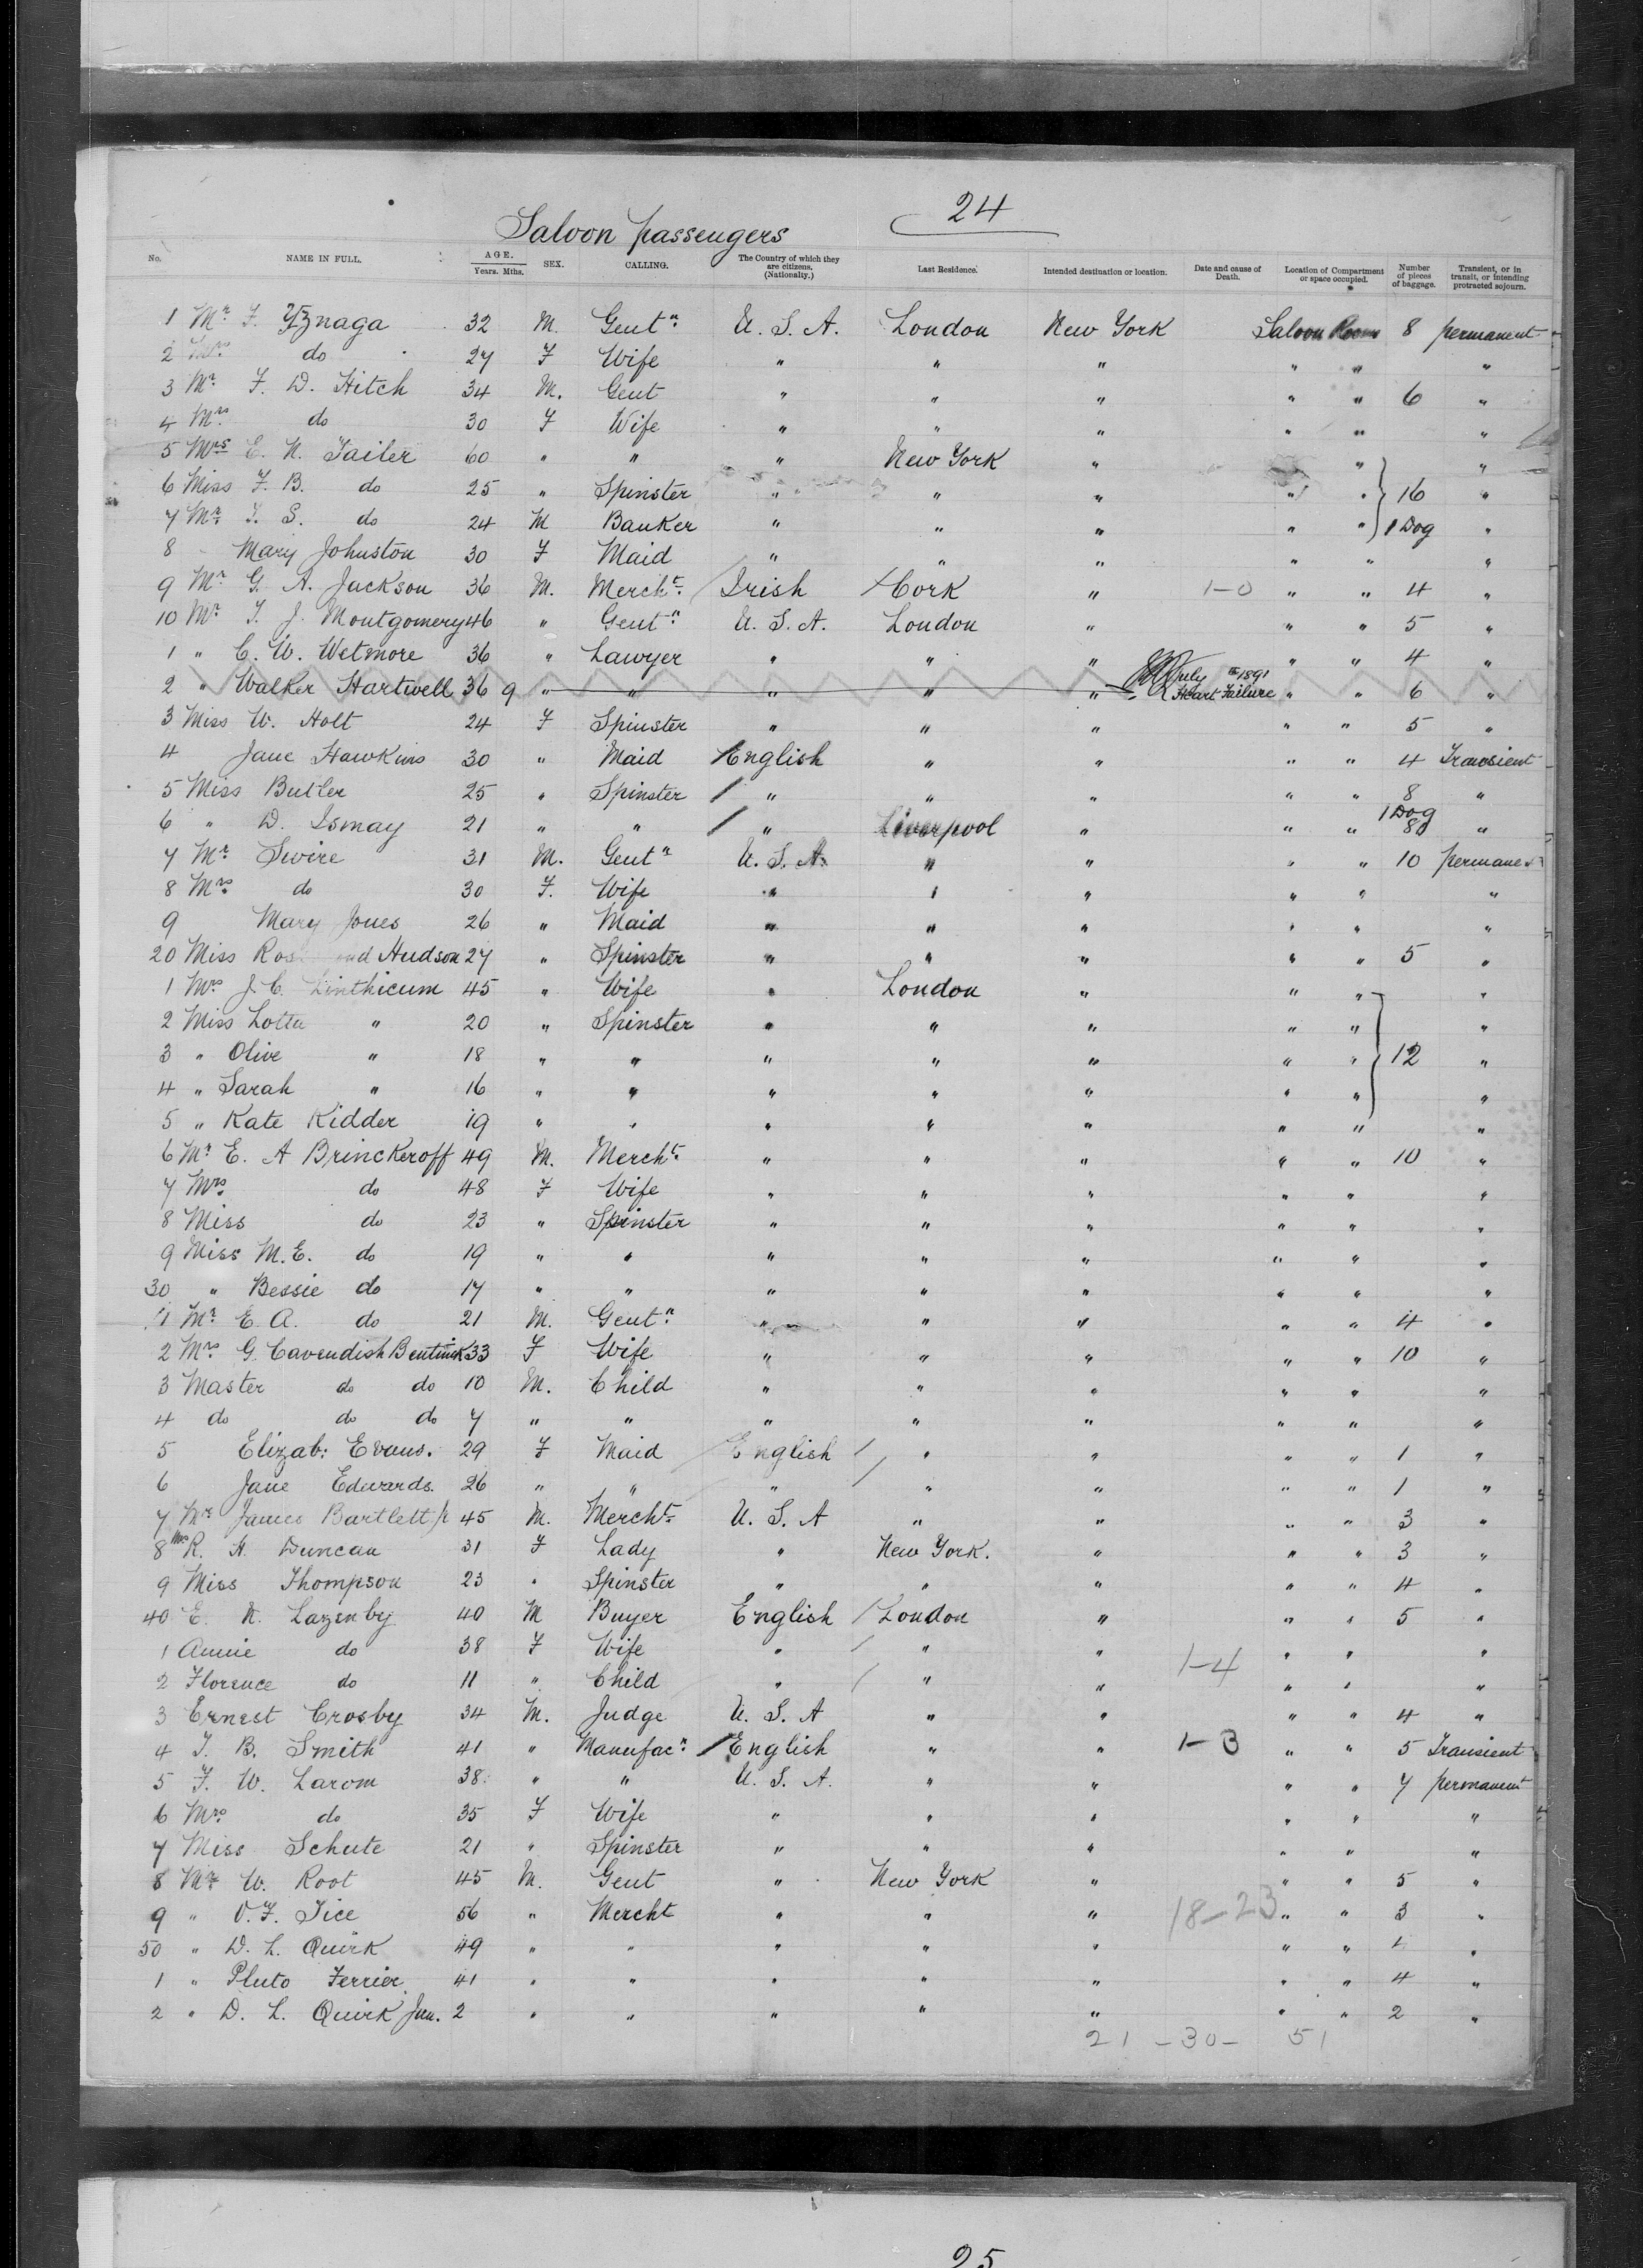 24
Saloon passengers
No. NAME IN FULL. AGE. Years. Mths. SEX. CALLING. The Country of which they are citizens. (Nationalty.) Last Residence. Intended destination or location. Date and cause of Death. Location of Compartment or space occupied. Number of pieces of baggage. Transient, or in transit, or intending protracted sojourn.
1 Mr F. Yznaga 32 M. Gentn U. S. A. London New York Saloon Room 8 permanent
2 Mrs do 27 F Wife " " " " " "
3 Mr F. D. Hitch 34 M. Gent " " " " " 6 "
4 Mrs do 30 F Wife " " " " " "
5 Mrs E. N. Tailer 60 " " " New York " " "
6 Miss F. B. do 25 " Spinster " " " " " 16 "
7 Mr T. S. do 24 M Banker " " " " " 1 Dog "
8 Mary Johnston 30 F Maid " " " " " "
9 Mr G. A. Jackson 36 M. Mercht Irish Cork " 1-0 " " 4 "
10 Mr T. J. Montgomery 46 " Gentn U. S. A. London " " " 5 "
1 " C. W. Wetmore 36 " Lawyer " " " " " 4 "
2 " Walker Hartwell 36 9 " " " " " July 1891 Heart Failure " " 6 "
3 Miss W. Holt 24 F Spinster " " " " " 5 "
4 Jane Hawkins 30 " Maid English " " " " 4 Transient
5 Miss Butler 25 " Spinster " " " " " 8 "
6 " D. Ismay 21 " " " Liverpool " " " 1 Dog 8 "
7 Mr Swire 31 M. Gentn U. S. A. " " " " 10 permanent
8 Mrs do 30 F. Wife " " " " " "
9 Mary Jones 26 " Maid " " " " " "
20 Miss Hudson 27 " Spinster " " " " " 5 "
1 Mrs J. C. Linthicum 45 " Wife " London " " " "
2 Miss Lotta " 20 " Spinster " " " " " "
3 " Olive " 18 " " " " " " " 12 "
4 " Sarah " 16 " " " " " " " "
5 " Kate Kidder 19 " " " " " " " "
6 Mr E. A Brinckeroff 49 M. Mercht " " " " " 10 "
7 Mrs do 48 F Wife " " " " " "
8 Miss do 23 " Spinster " " " " " "
9 Miss M.E. do 19 " " " " " " " "
30 " Bessie do 17 " " " " " " " "
1 Mr E. A. do 21 M. Gentn " " " " " 4 "
2 Mrs G. Cavendish Bentinck 33 F Wife " " " " " 10 "
3 Master do do 10 M. Child " " " " " "
4 do do do 7 " " " " " " " "
5 Elizab: Evans. 29 F Maid English " " " " 1 "
6 Jane Edwards. 26 " " " " " " " 1 "
7 Mr James Bartlett 45 M. Mercht U. S. A " " " " 3 "
8 Mrs R. H. Duncan 31 F Lady " New York. " " " 3 "
9 Miss Thompson 23 " Spinster " " " " " 4 "
40 E. N. Lazenby 40 M Buyer English London " " " 5 "
1 Annie do 38 F Wife " " " " " "
1-4
2 Florence do 11 " Child " " " " " "
3 Ernest Crosby 34 M. Judge U. S. A " " " " 4 "
4 T. B. Smith 41 " Manufacn English " " 1-3 " " 5 Transient
5 F. W. Larom 38 " " U. S. A. " " " " 7 permanent
6 Mrs do 35 F Wife " " " " " "
7 Miss Schute 21 " Spinster " " " " " "
8 Mr W. Root 45 M. Gent " New York " " " 5 "
9 " O. F. Tice 56 " Mercht " " " 18-23 " " 3 "
50 " D. L. Quirk 49 " " " " " " " "
1 " Pluto Ferrier 41 " " " " " " " 4 "
2 " D. L. Quirk Jun. 2 " " " " " " " 2 "
21 - 30 - 51
25